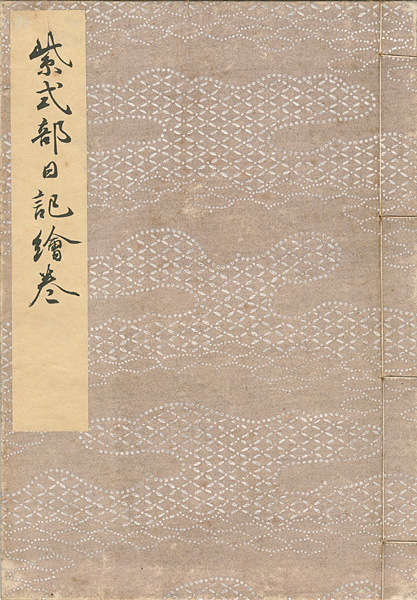 紫式部日記繪卷